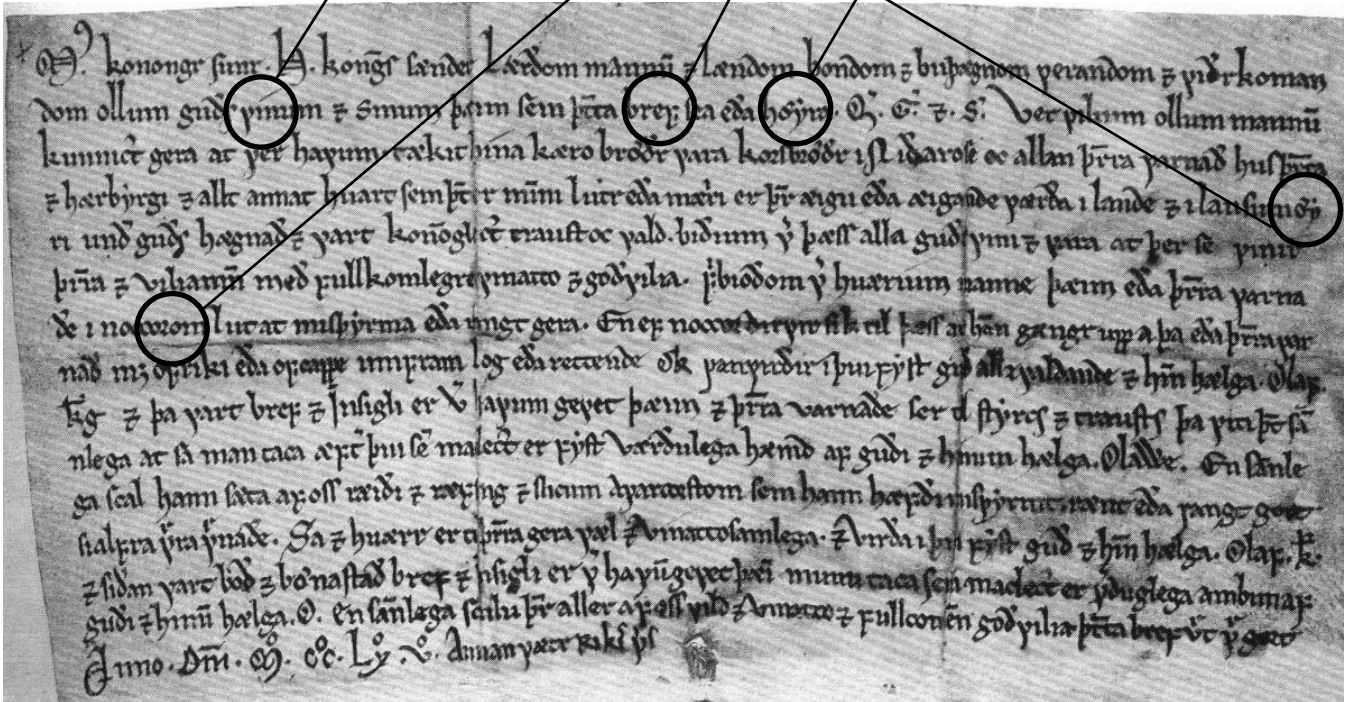 M. konongr sunr. H. kongs sænder Lærdom mannū ⁊ lændom bondom ⁊ buþægnom verandom ⁊ viðrkoman
dom ollum guðs vinum ⁊ sinum þæim sem þetta bref sea eða høyra. Q. G. ⁊. S. Ver vilium ollum mannū
kunnict gera at ver hafum tækit hina kæro brøðr vara korsbrøðr i Niðarose oc allan þæirra varnað hus
⁊ hærbyrgi ⁊ allt annat huart sem þet er minni lutr eða mæiri er þæir æigu eða æigande værða i lande ⁊ i lausum øy
ri undir guðs hægnað ⁊ vart konoglict traust oc vald. biðium ver þæss alla guðs vini ⁊ vara at þer se vinir
þæirra ⁊ viliamenn með fullkomlegre vinatto ⁊ goðvilia. firibioðom ver huærium manne þæim eða þæirra varna
ðe i nocorom lut at misþyrma eða rangt gera. En ef
nað með ofriki eða ofcappe um fram log eða rettende Ok hin hælga. Olaf.
kong ⁊ þa vart bref ⁊ Insigli er ver hafum gevet þæim ⁊ þæirra varnaðe ser til styrcs ⁊ trausts þa viti þet sā
nlega at sa man taca æfter þui se malect er fyst værðulega hæmd af guði ⁊ hinum hælga. Olave. En sānle
ga scal hann sæta af oss ræiði ⁊ ræfsing ⁊ slicum sem hann hæfði misþyrmt rænt eða rangt gort
sialfra varra vinaðe. Sa ⁊ huærr er til þæirra gera væl ⁊ vinattosamlega. ⁊ virða i þui fyst guð ⁊ hin hælga. Olaf. k.
⁊ siðan vart boð ⁊ bonastað bref ⁊ insigli er ver hafū gevet þæi munu taca sem maclect er ambun af
guði ⁊ hinū hælga. O. En sānlega sculu þæir aller af oss vild ⁊ vinatto ⁊ fullcomen goðvilia þetta bref var gort
Anno. Dm̄. M. cc. L. v. Annan vætr rikis vars